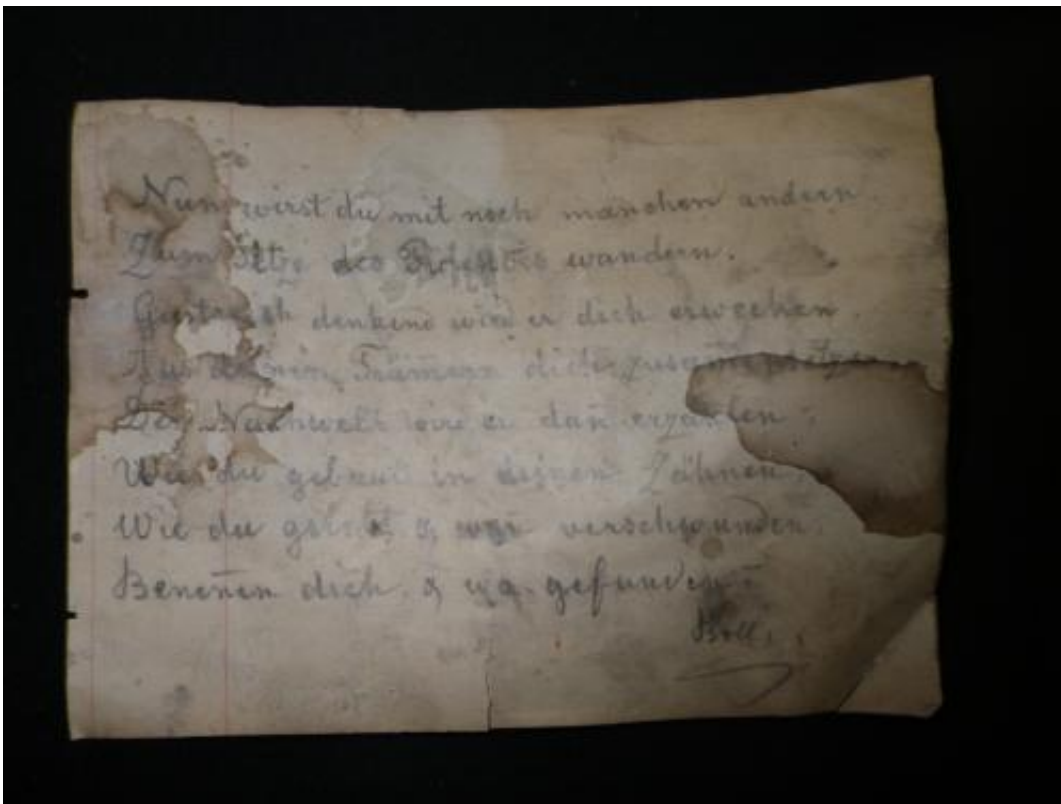 Nun wirst du mit noch manchen andern
Zum Sitze des Profeßors wandern.
denkend wird er dich erwecken
Aus deinen Trümern dich
Der Nachwelt wird er dañ erzählen:
Wie du gebaut in deinen Zähnen,
Wie du gelebt, & wie verschwunden.
Beneñen dich. & wo. gefunden.
Boll.